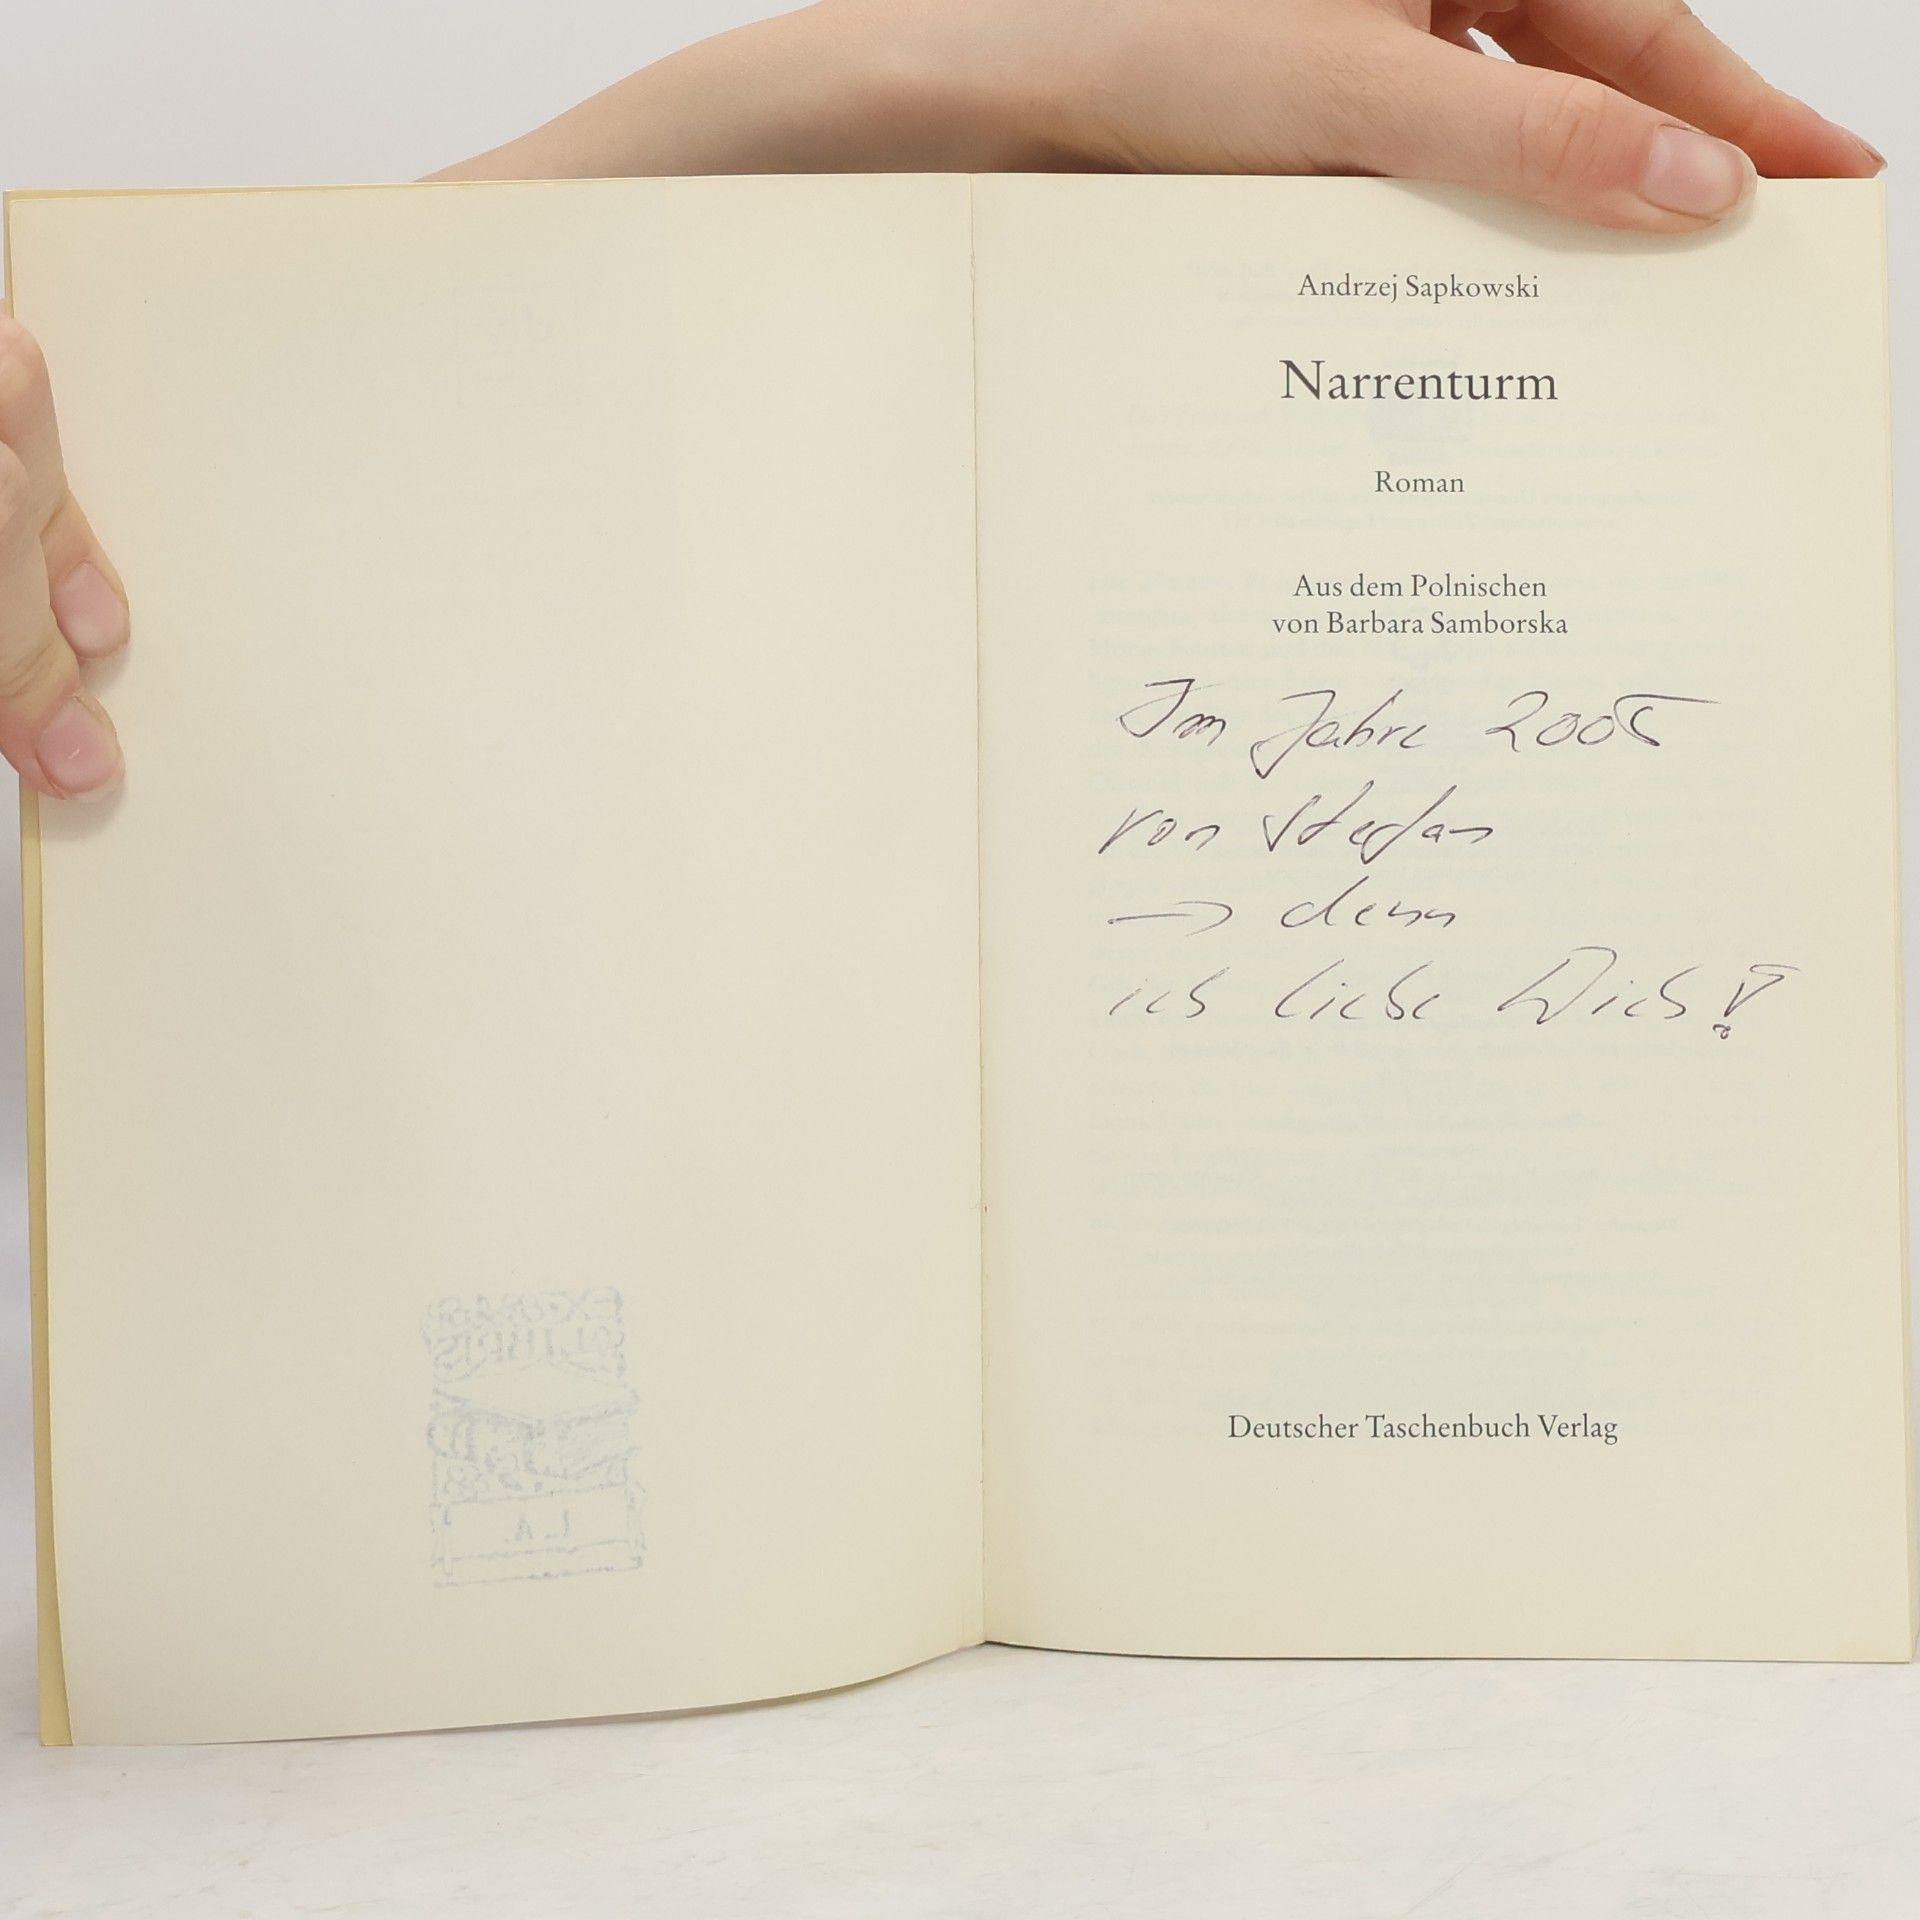 Andrzej Sapkowski
Narrenturm
Roman
Aus dem Polnischen
von Barbara Samborska
Im Jahre 2005
von Stefan
→ denn
ich liebe Dich!
Deutscher Taschenbuch Verlag
EX
LIBRIS
L.A.